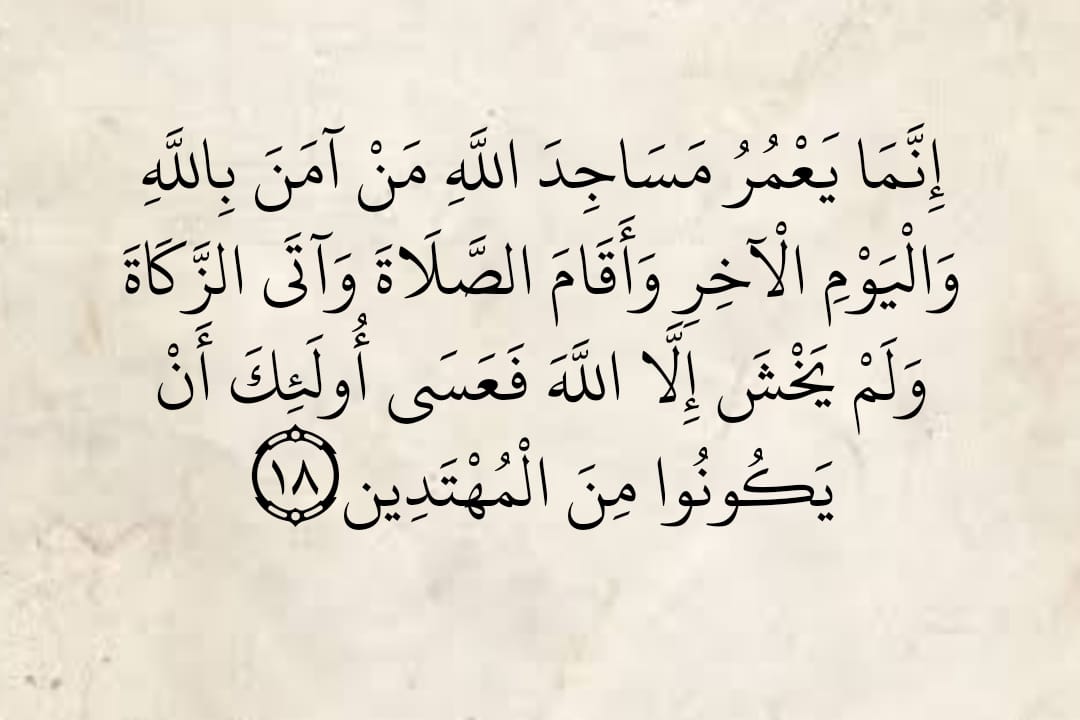 إِنَّمَا يَعْمُرُ مَسَاجِدَ اللَّهِ مَنْ آمَنَ بِاللَّهِ
وَالْيَوْمِ الْآخِرِ وَأَقَامَ الصَّلَاةَ وَآتَى الزَّكَاةَ
وَلَمْ يَخْشَ إِلَّا اللَّهَ فَعَسَى أُولَئِكَ أَنْ
يَكُونُوا مِنَ الْمُهْتَدِين ١٨